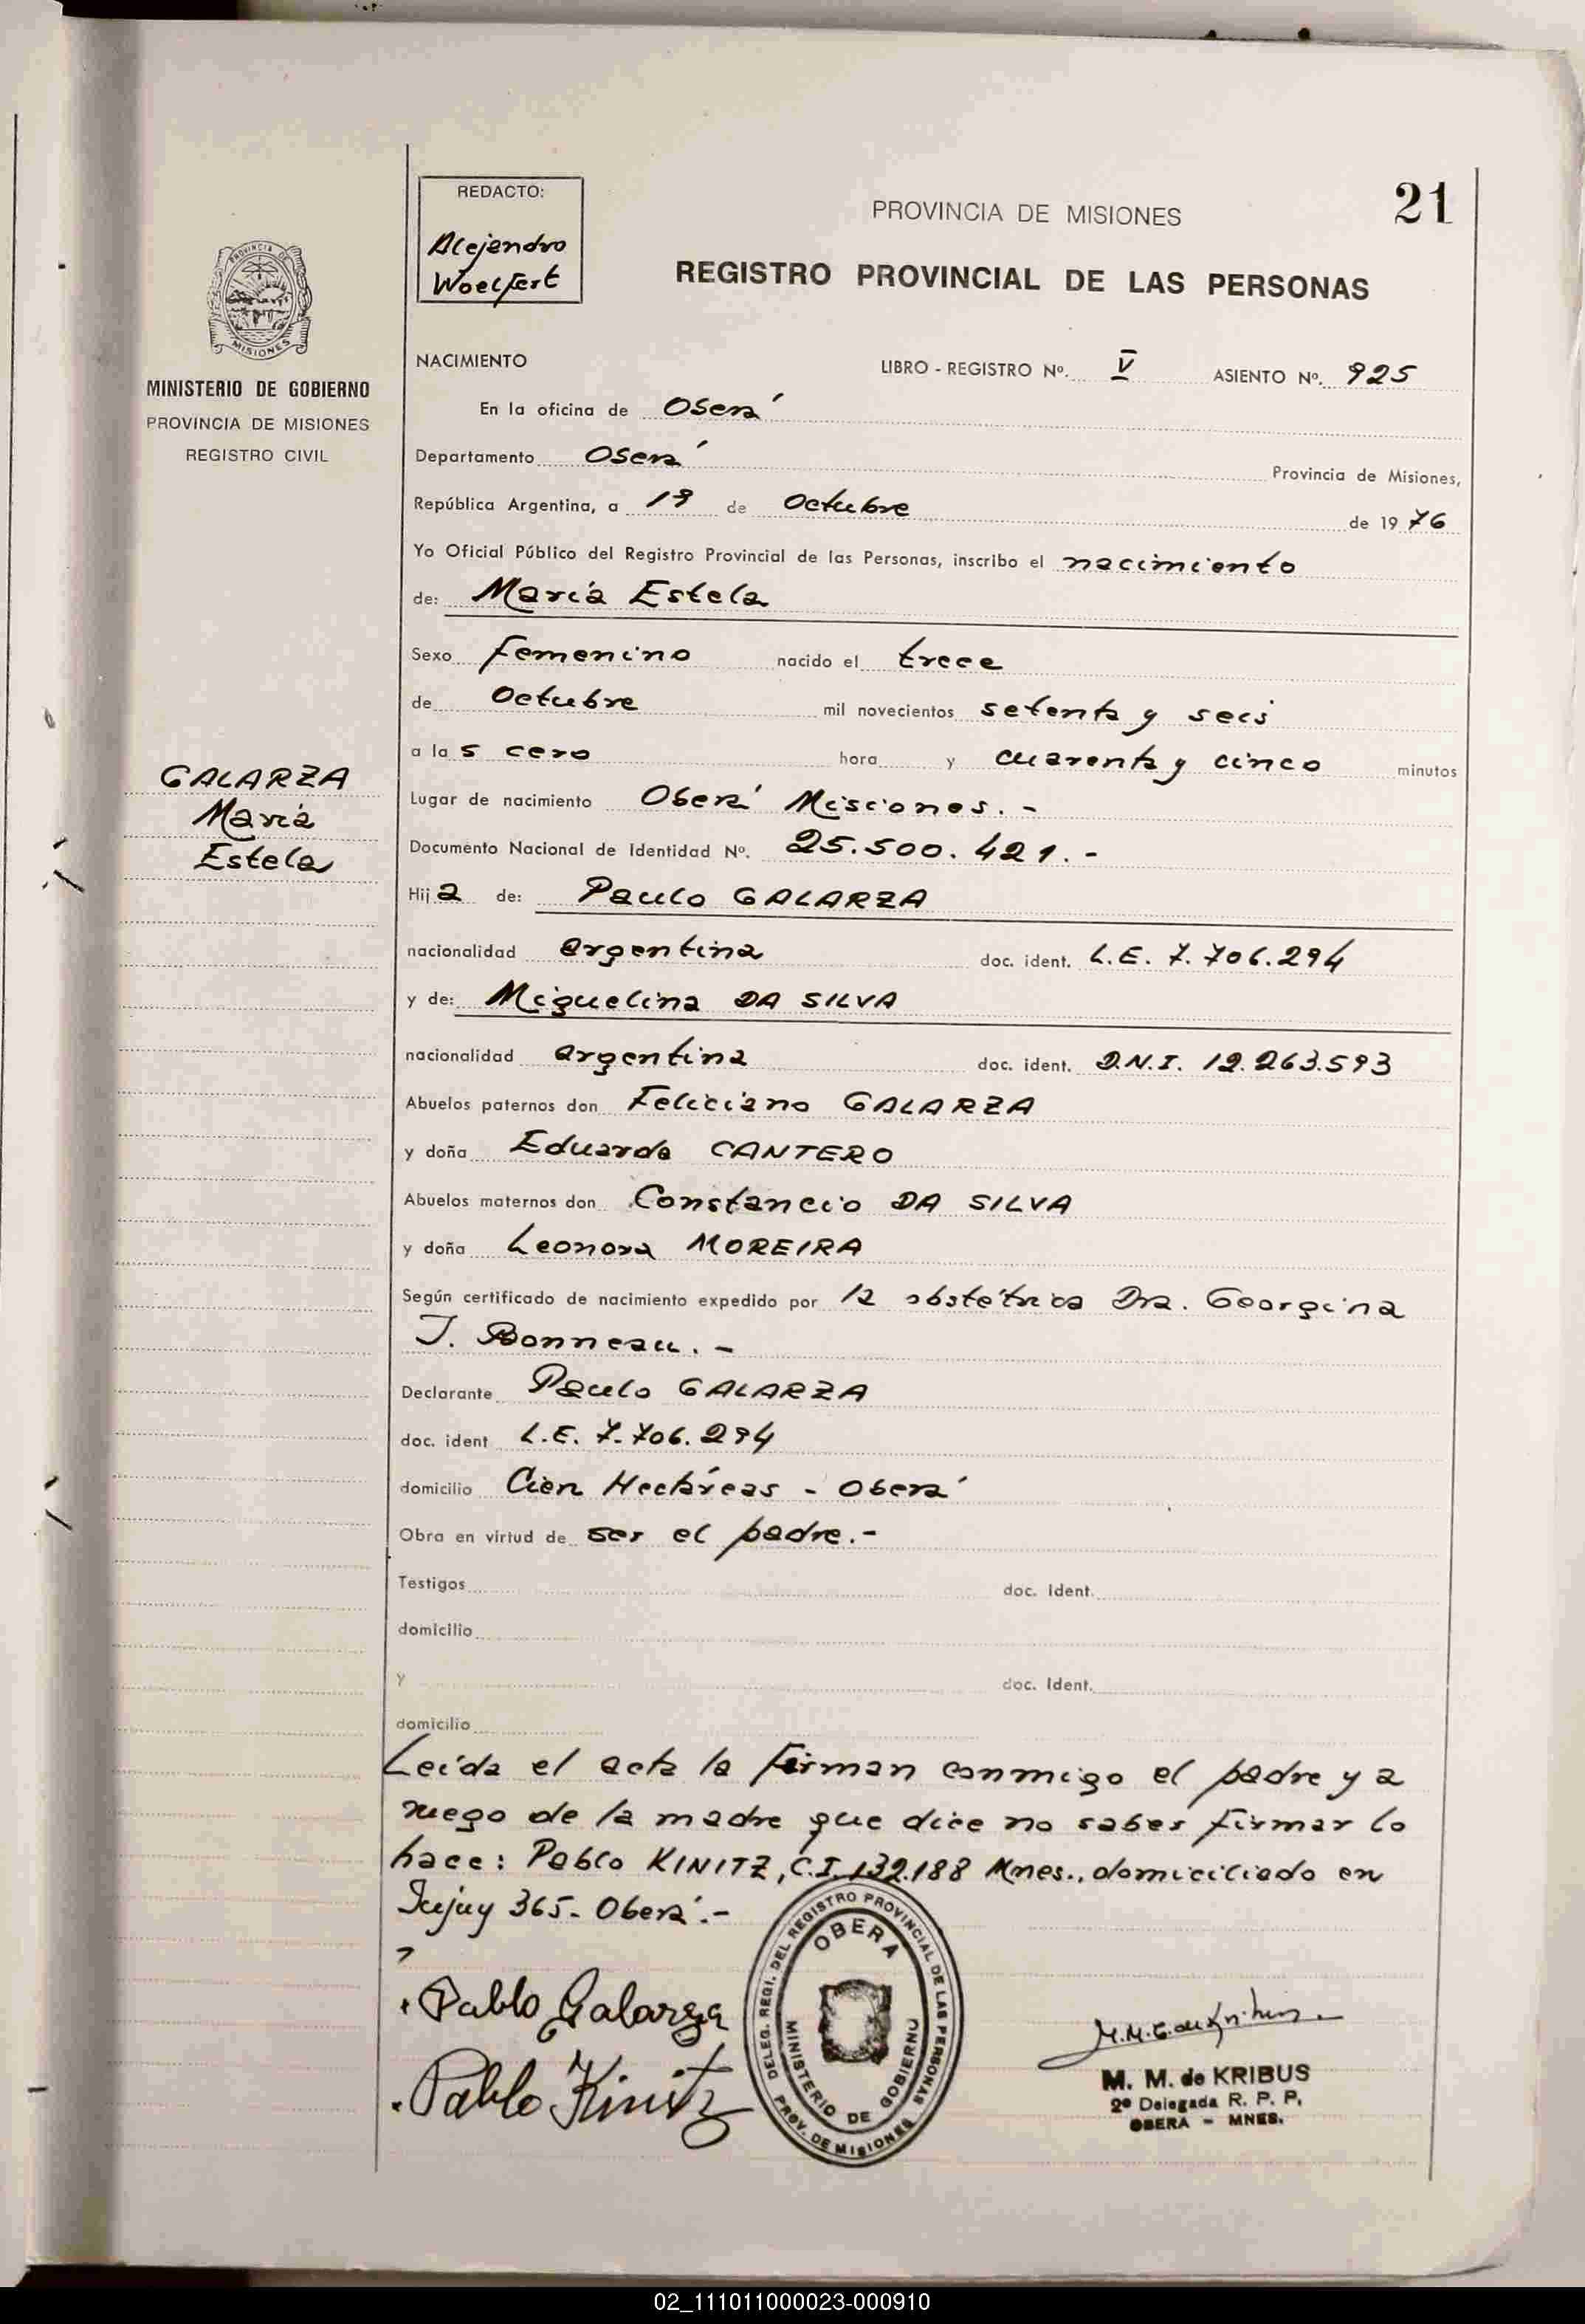 21
REDACTO:
Alejandro
Woelfert
PROVINCIA DE MISIONES
REGISTRO PROVINCIAL DE LAS PERSONAS
PROVINCIA DE MISIONES
MINISTERIO DE GOBIERNO
PROVINCIA DE MISIONES
REGISTRO CIVIL
NACIMIENTO LIBRO - REGISTRO Nº. V ASIENTO Nº. 925
En la oficina de Oberá
Departamento Oberá Provincia de Misiones,
República Argentina, a 19 de Octubre de 19 76
Yo Oficial Público del Registro Provincial de las Personas, inscribo el nacimiento
de: María Estela
Sexo femenino nacido el trece
de Octubre mil novecientos setenta y seis
a la s cero hora y cuarenta y cinco minutos
GALARZA
María
Estela
Lugar de nacimiento Oberá Misiones. -
Documento Nacional de Identidad Nº. 25.500.421. -
Hij a de: Paulo GALARZA
nacionalidad argentina doc. ident. L.E. 7.706.294
y de: Miguelina DA SILVA
nacionalidad argentina doc. ident. D.N.I. 12.263.593
Abuelos paternos don Feliciano GALARZA
y doña Eduarda CANTERO
Abuelos maternos don Constancio DA SILVA
y doña Leonora MOREIRA
Según certificado de nacimiento expedido por la obstétrica Dra. Georgina
J. Bonneau. -
Declarante Paulo GALARZA
doc. ident L.E. 7.706.294
domicilio Cien Hectáreas - Oberá
Obra en virtud de ser el padre.-
Testigos doc. Ident.
domicilio
y doc. Ident.
domicilio
Leída el acta la firman conmigo el padre y a
ruego de la madre que dice no saber firmar lo
hace: Pablo KINITZ, C.I. 132.188 Mnes., domiciliado en
Jujuy 365- Oberá.-
Pablo Galarza
Pablo Kinitz
DELEG. REGI. DEL REGISTRO PROVINCIAL DE LAS PERSONAS
OBERA
MINISTERIO DE GOBIERNO
PROV. DE MISIONES
M. M. de KRIBUS
2º Delegada R. P. P.
OBERA - MNES.
02_111011000023-000910